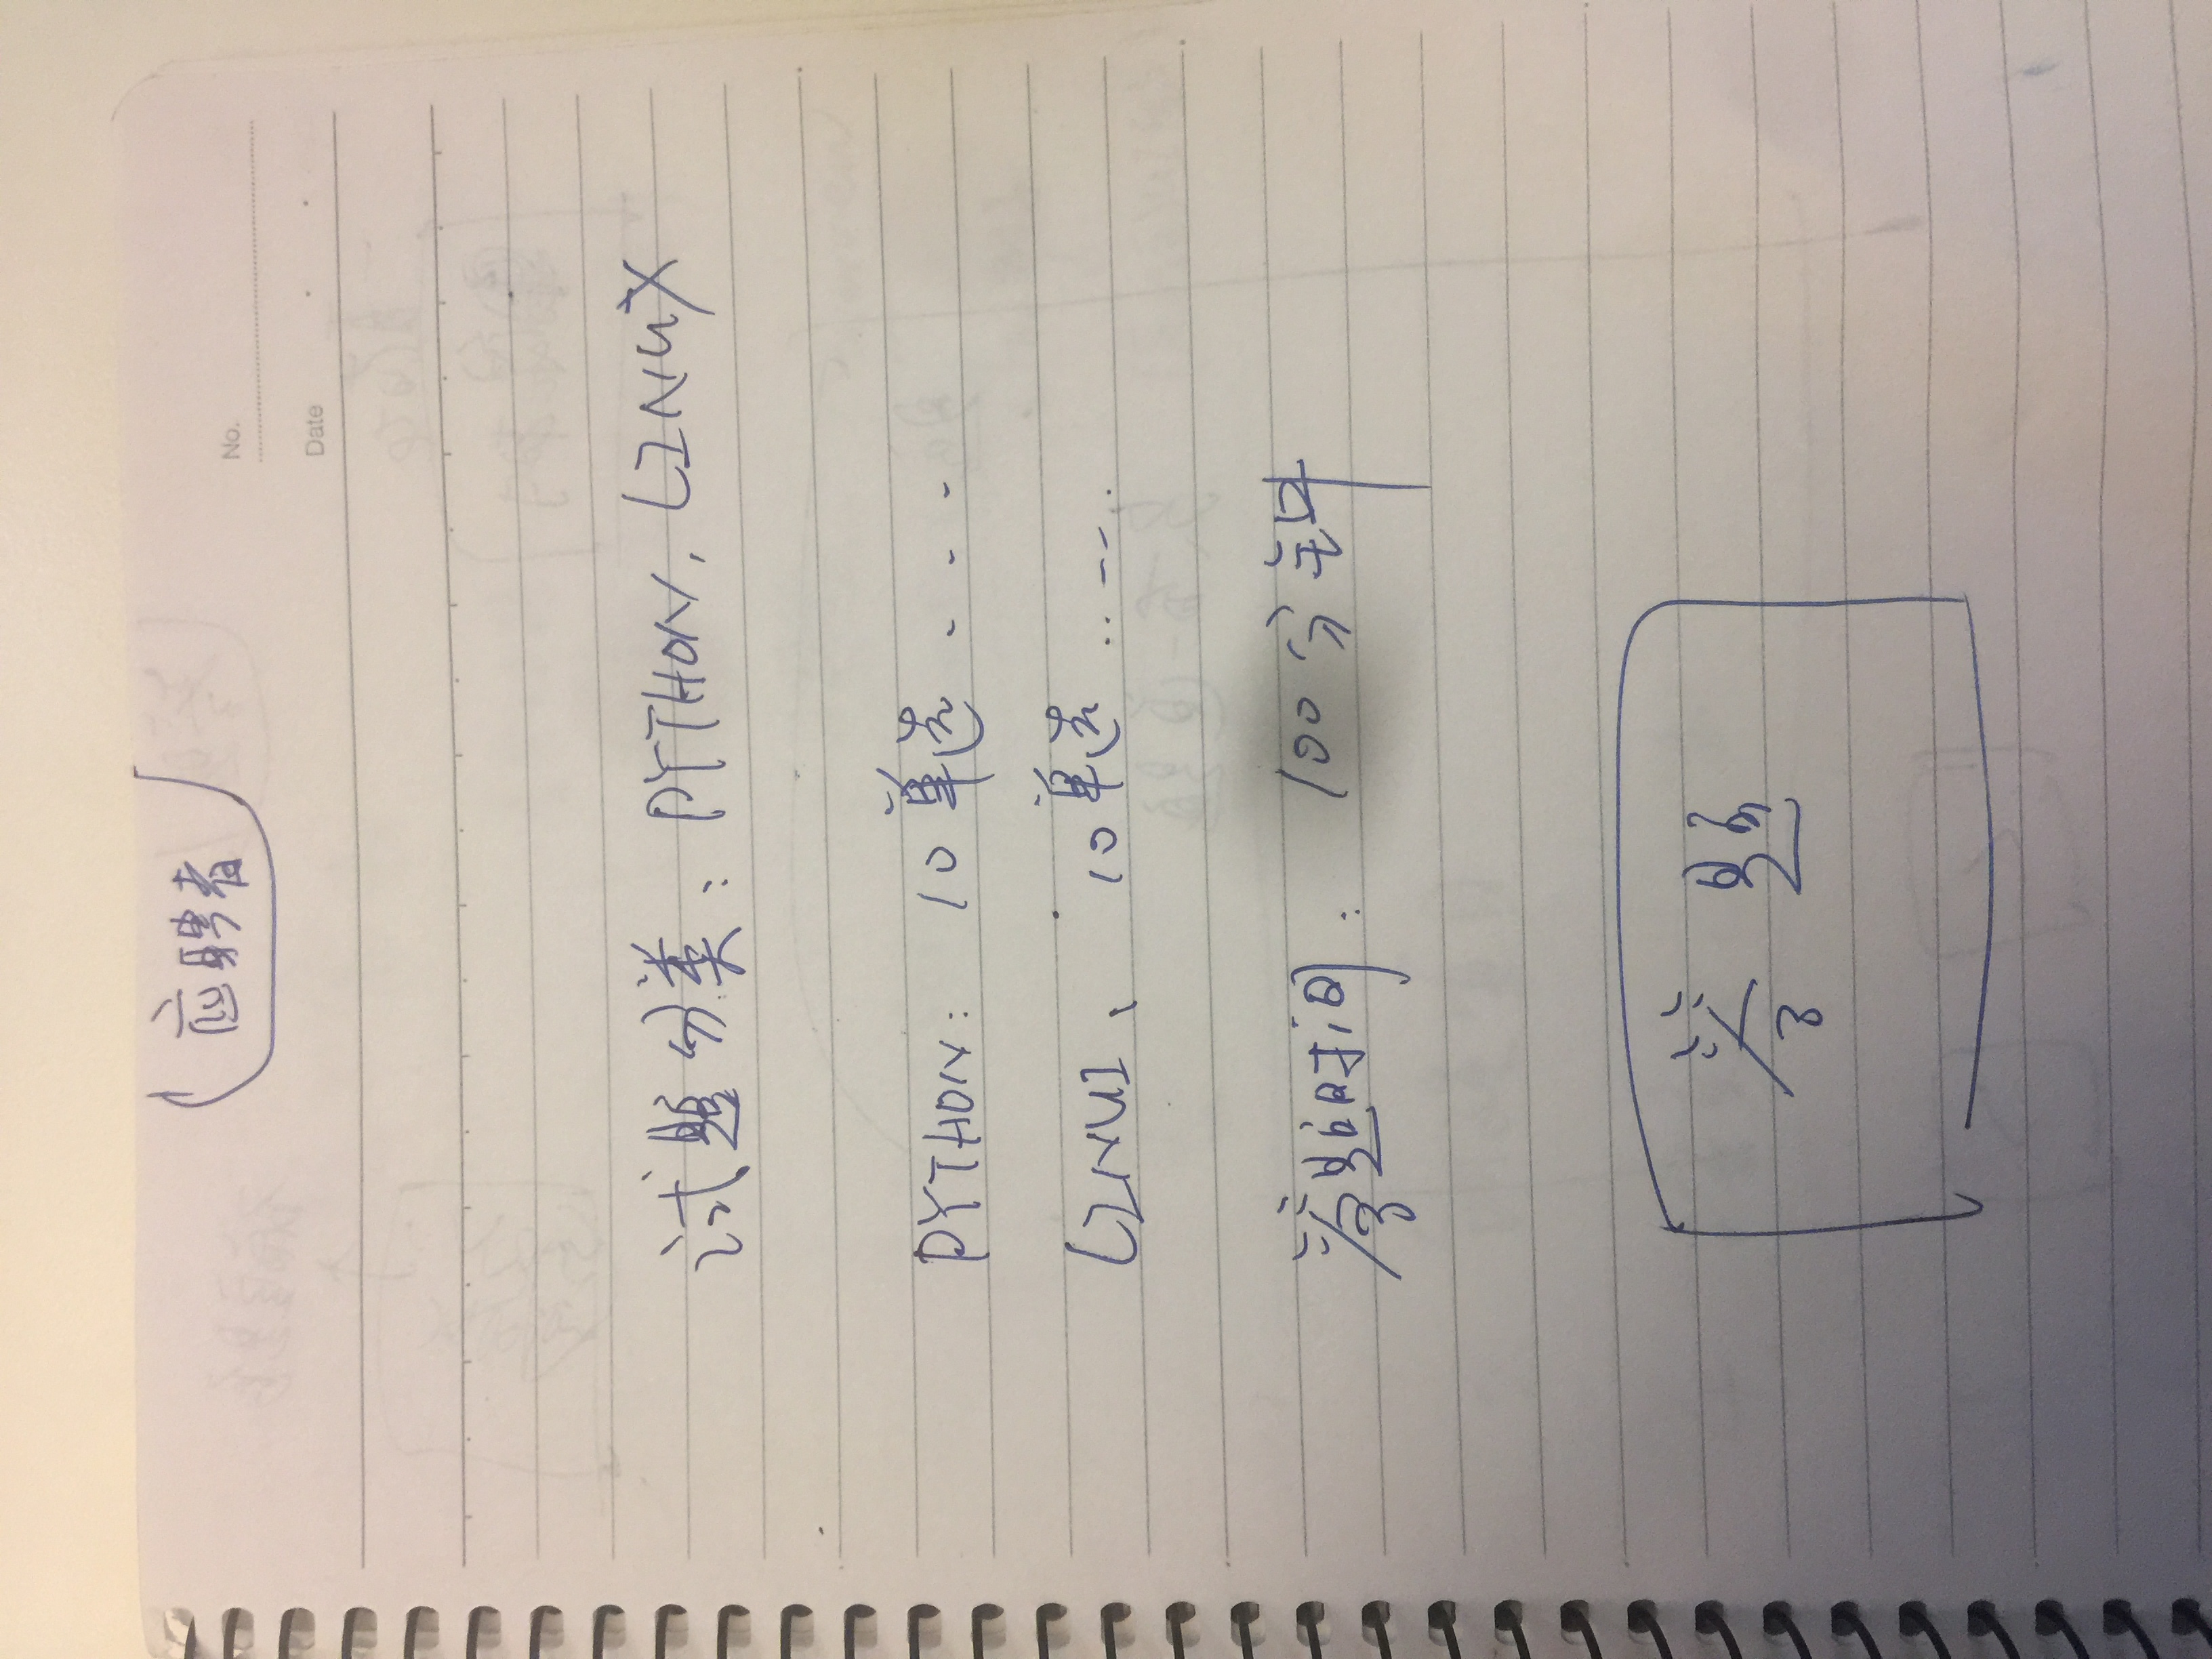 应聘者
No.
Date
试题分类：PYTHON, LINUX
PYTHON: 10单选 . - - -
LINUI、 10单选 .. -- .
答题时间：100分钟
答题